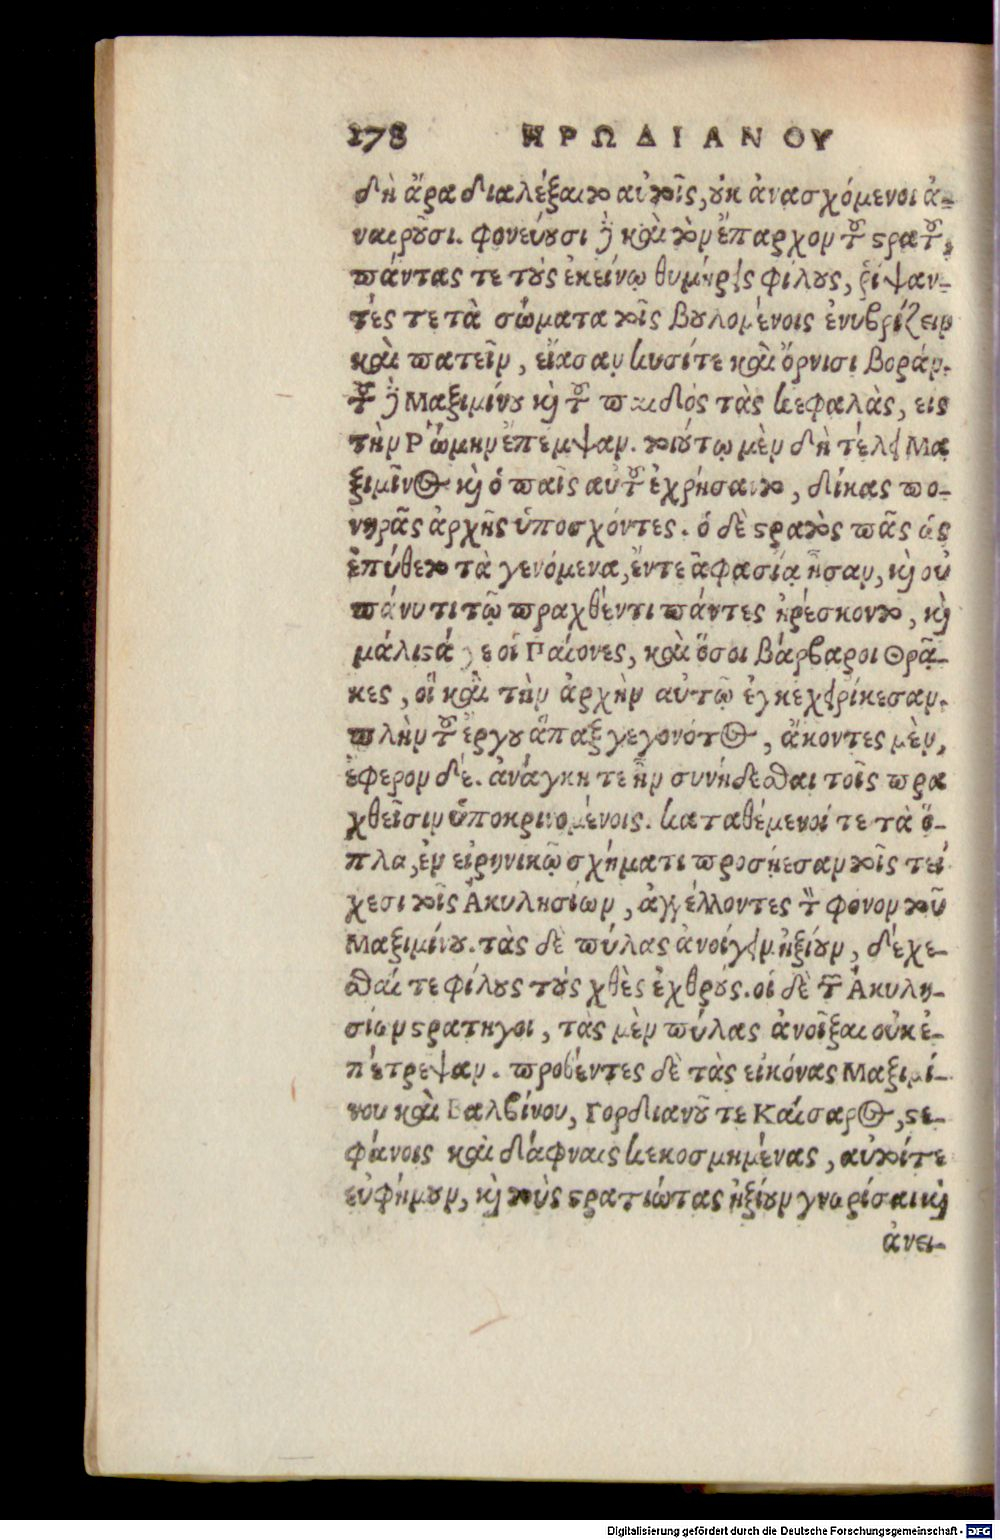 178 ΗΡΩΔΙΑΝΟΥ
δὴ ἄρα διαλέξαιτο αὐτοῖς, οὐκ ἀνασχόμενοι ἀ-
ναιροῦσι. φονεύουσι δὲ καὶ τὸν ἔπαρχον τοῦ στρατοῦ,
πάντας τε τοὺς ἐκείνῳ θυμήρεις φίλους, ῥίψαν-
τές τε τὰ σώματα τοῖς βουλομένοις ἐνυβρίζειν
καὶ πατεῖν, εἴασαν κυσίτε καὶ ὄρνισι βοράν.
τοῦ δὲ Μαξιμίνου καὶ τοῦ παιδὸς τὰς κεφαλὰς, εις
τὴν Ῥώμην ἔπεμψαν. τοιούτῳ μὲν δὴ τέλει Μα
ξιμῖνος καὶ ὁ παῖς αὐτοῦ ἐχρήσαντο, δίκας πο-
νηρᾶς ἀρχῆς ὑποσχόντες. ὁ δὲ στρατὸς πᾶς ὡς
ἐπύθετο τὰ γενόμενα, ἔντε ἀφασίᾳ ἦσαν, καὶ οὐ
πάνυ τι τῷ πραχθέντι πάντες ἠρέσκοντο, καὶ
μάλιστά γε οἱ Παίονες, καὶ ὅσοι βάρβαροι Θρᾷ-
κες, οἳ καὶ τὴν ἀρχὴν αὐτῷ ἐγκεχειρίκεσαν.
πλὴν τοῦ ἔργου ἅπαξ γεγονότος, ἄκοντες μὲν,
ἐφερον δέ. ἀνάγκη τε ἦν συνήδεσθαι τοῖς πρα
χθεῖσιν ὑποκρινομένοις. καταθέμενοί τε τὰ ὅ-
πλα, ἐν εἰρηνικῷ σχήματι προσῄεσαν τοῖς τεί
χεσι τοῖς Ἀκυλησίων, ἀγγέλλοντες τὸν φόνον τοῦ
Μαξιμίνου. τὰς δὲ πύλας ἀνοίγειν ἠξίουν, δέχε-
σθαί τε φίλους τοὺς χθὲς ἐχθρούς. οἱ δὲ τῶν Ἀκυλη-
σίων στρατηγοι, τὰς μὲν πύλας ἀνοῖξαι οὐκ ἐ-
πέτρεψαν. προθέντες δὲ τὰς εἰκόνας Μαξιμί-
νου καὶ Βαλβίνου, Γορδιανοῦ τε Καίσαρος, στε-
φάνοις καὶ δάφναις κεκοσμημένας, αὐτοίτε
εὐφήμουν, καὶ τοὺς στρατιώτας ἠξίουν γνωρίσαι καὶ
ἀνει-
Digitalisierung gefördert durch die Deutsche Forschungsgemeinschaft - DFG